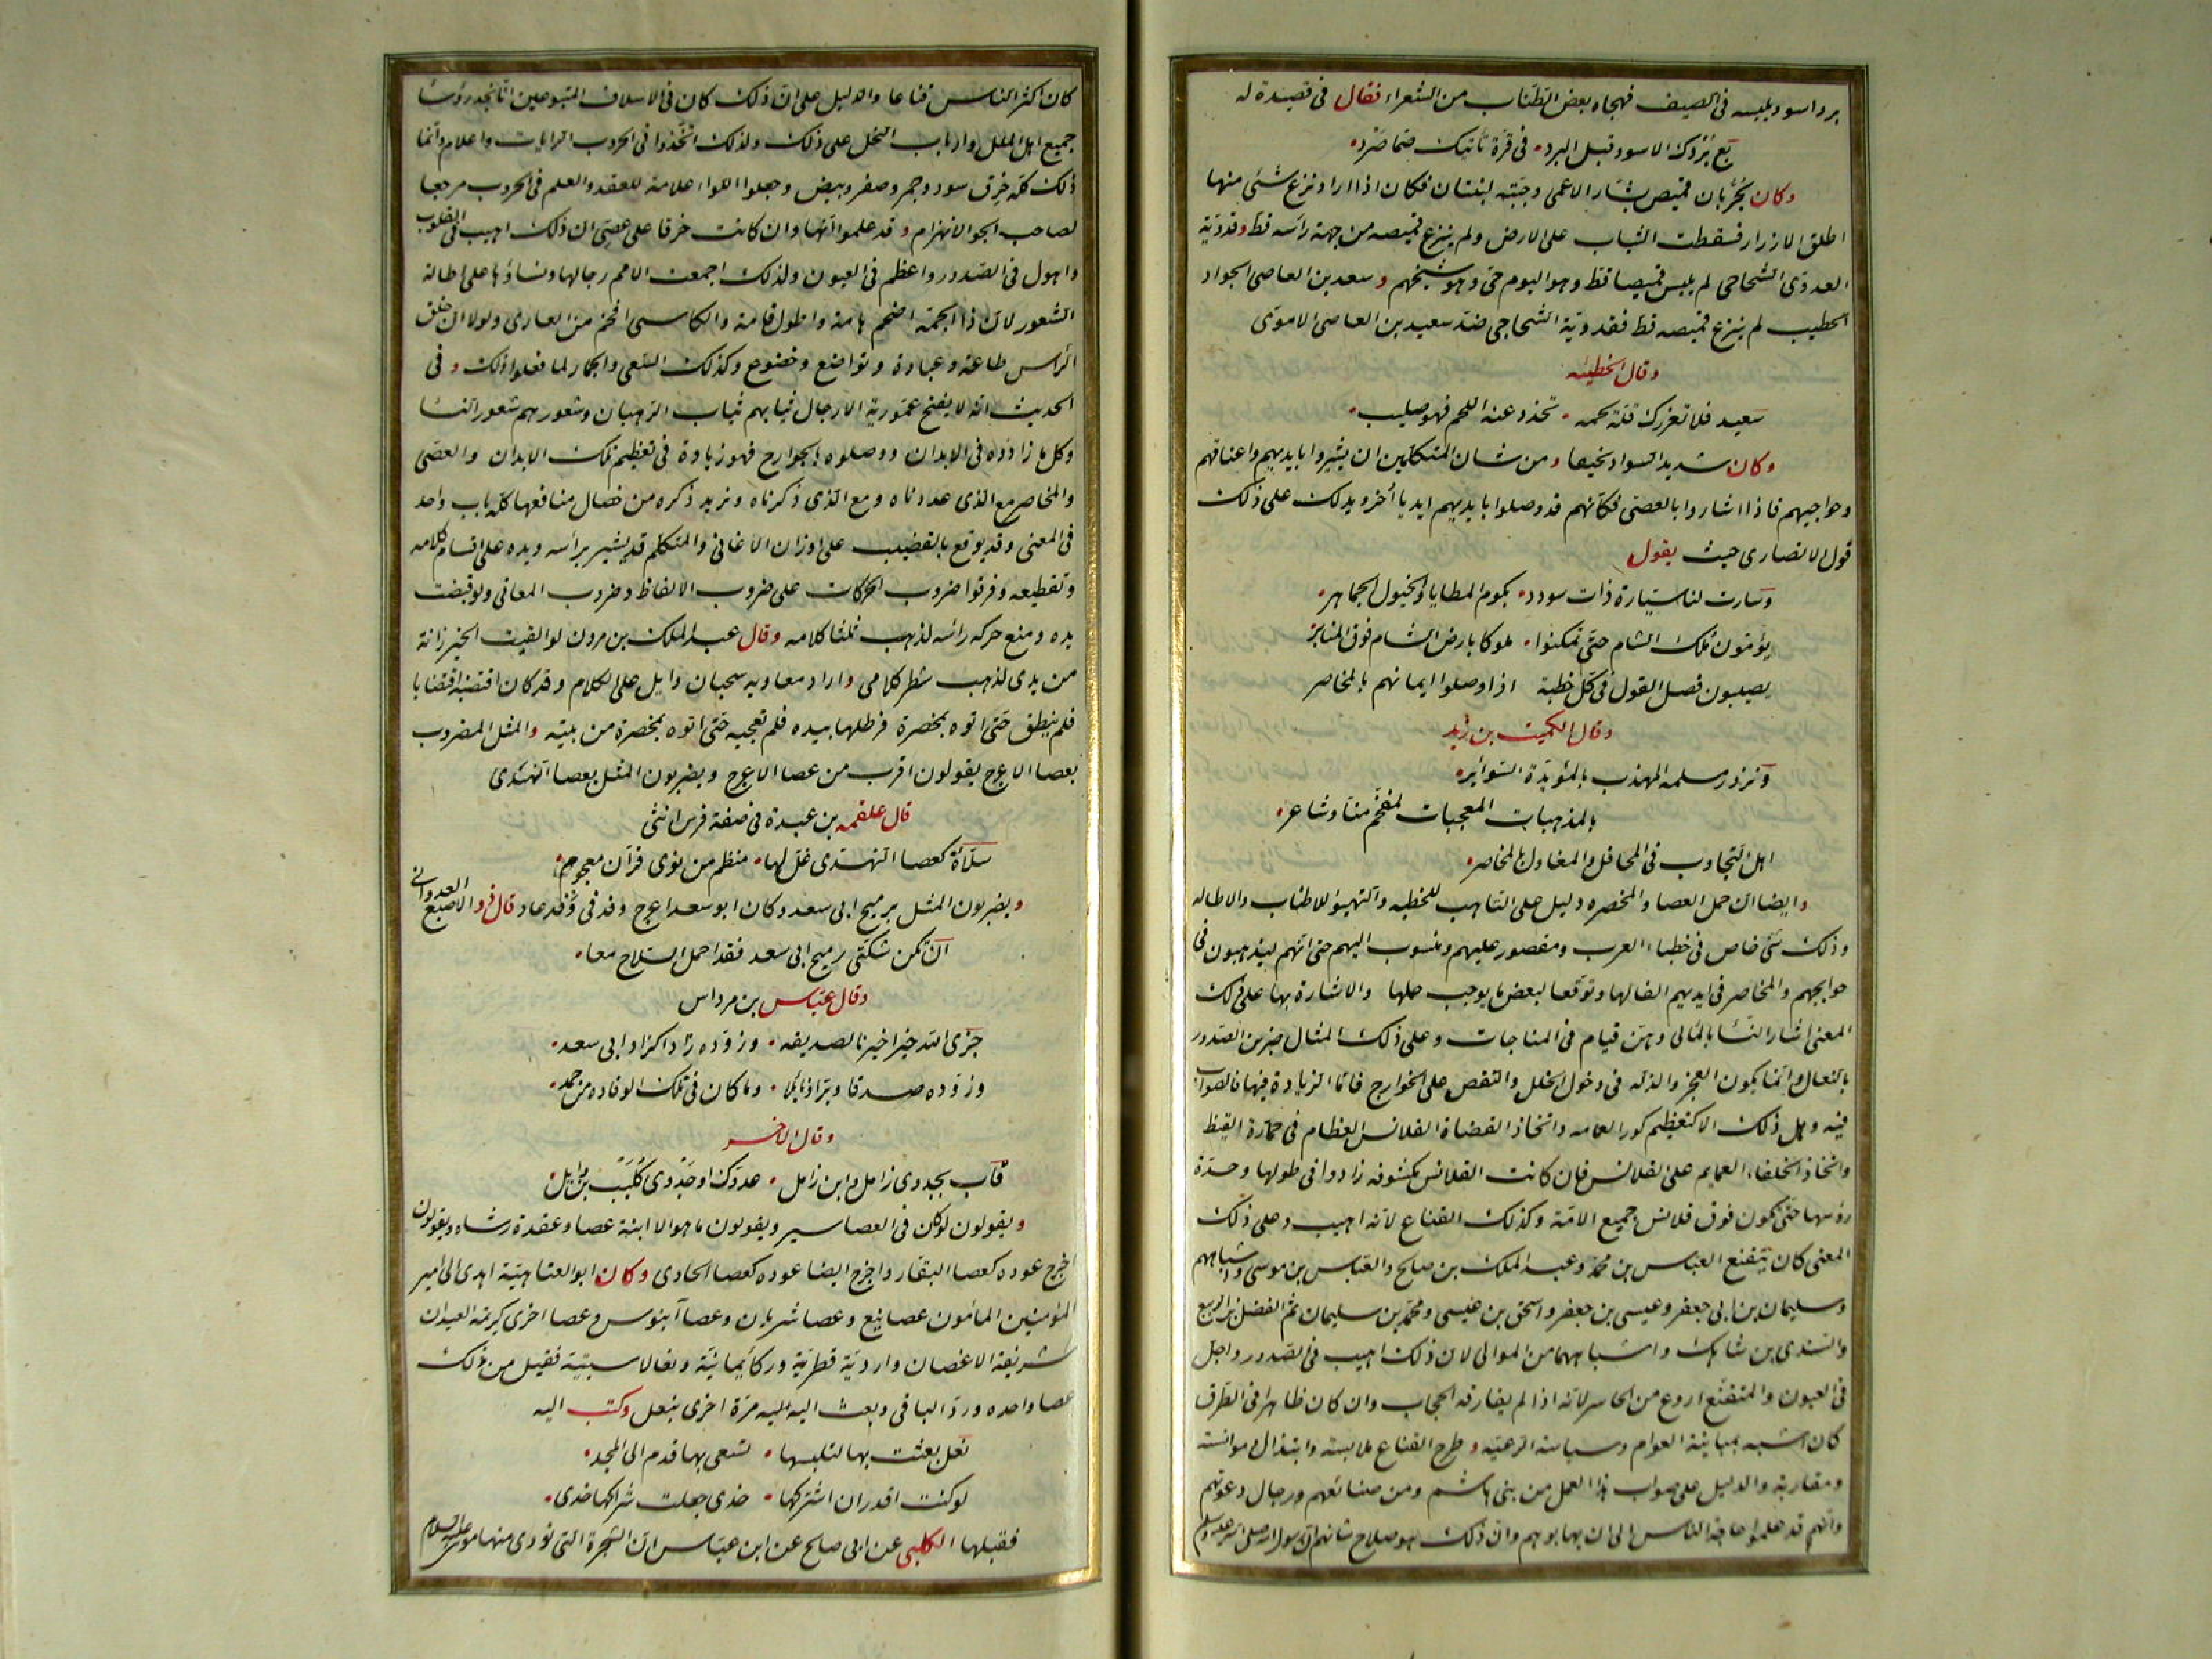 برد اسود يلبسه فى الصيف فهجاه بعض الطياب من الشعراء فقال فى قصيدة له
بع بردك الاسود قبل البرد فى قرة تأتيك صما صرد
وكان بجربان قميص بشار الاعمى وجبته لبنتان فكان اذا اراد نزع شئ منها
اطلق الازرار فسقطت الثياب على الارض ولم ينزع قميصه من جهة رأسه قط وقدوية
العدوى الشحاجى لم يلبس قميصا قط وهو اليوم حى وهو شيخهم و سعد بن العاصى الجواد
الخطيب لم ينزع قميصه قط فقدوية الشحاجى ضد سعيد بن العاصى الاموى
وقال الحطيئه
سعيد فلا تغررك قلة لحمه تخدد عنه اللحم فهو صليب
وكان شديد السواد نحيفا ومن شان المتكلمين ان يشيروا بايديهم واعناقهم
وحواجبهم فاذا اشاروا بالعصى فكانهم قد وصلوا بايديهم ايديا أخر ويدلك على ذلك
قول الانصارى حيث يقول
وسارت لنا سيارة ذات سودد بكوم المطايا والخيول الجماهر
يؤمون ملك الشام حتى تمكنوا ملوكا بارض الشام فوق المنابر
يصيبون فصل القول فى كل خطبة اذا وصلوا ايمانهم بالمخاصر
وقال الكميت بن زيد
ونزور مسلمه المهذب بالمؤبدة السوائر
بالمذهبات المعجبات لمفحم منا وشاعر
اهل التجاوب فى المحافل والمقاول بالمخاصر
وايضا ان حمل العصا والمخصره دليل على التاهب للخطبه والتهيؤ للاطناب والاطاله
وذلك شئ خاص فى خطباء العرب ومقصور عليهم ومنسوب اليهم حتى انهم ليذهبون فى
حوايجهم والمخاصر فى ايديهم الفا لها وتوقعا لبعض ما يوجب حملها والاشارة بها على ذلك
المعنى اشار النسا بالمآلى وهن قيام فى المناجات وعلى ذلك المثال ضربن الصدور
بالنعال وانما يكون العجز والذله فى دخول الخلل والنقص على الجوارح فاما الزيادة فيها فالصواب
فيه وهل ذلك الا كتعظيم كور العمامه واتخاذ القضاة القلانس العظام فى حمارة القيظ
واتخاذ الخلفاء العمايم على القلانس فان كانت القلانس مكشوفه زادوا فى طولها وحدة
رؤسها حتى تكون فوق قلانس جميع الامة وكذلك القناع لانه اهيب وعلى ذلك
المعنى كان يتقنع العباس بن محمد وعبد الملك بن صالح والعباس بن موسى واشباههم
وسليمان بن ابى جعفر وعيسى بن جعفر واسحق بن عيسى ومحمد بن سليمان ثم الفضل بن الربيع
والسندى بن شاهك واشباههما من الموالى لان ذلك اهيب فى الصدور واجل
فى العيون والمتقنع اروع من الحاسر لانه اذا لم يفارقه الحجاب وان كان ظاهرا فى الطرق
كان اشبه بمباينة العوام وسياسة الرعيه و طرح القناع ملابسة وابتذال وموانسة
ومقاربة والدليل على صواب هذا العمل من بنى هاشم ومن صنائعهم ورجال دعوتهم
وانهم قد علموا حاجة الناس الى ان يهابوهم وان ذلك هو صلاح شانهم ان رسول الله صلى الله عليه وسلم
كان اكثر الناس قناعا والدليل على ان ذلك كان فى الاسلاف المتبوعين انا نجد رؤسا
جميع اهل الملل وارباب النحل على ذلك ولذلك اتخذوا فى الحروب الرايات واعلام وانما
ذلك كله خرق سود وحمر وصفر وبيض وجعلوا اللواء علامة للعقد والعلم فى الحروب مرجعا
لصاحب الجولانهزام وقد علموا انها وان كانت خرقا على عصى ان ذلك اهيب فى القلوب
واهول فى الصدور واعظم فى العيون ولذلك اجمعت الامم رجالها ونساؤها على اطالة
الشعور لان ذا الجمة اضخم هامة واطول قامة والكاسى افخم من العارى ولولا ان حلق
الرأس طاعة وعبادة وتواضع وخضوع وكذلك السعى والجمار لما فعلوا ذلك وفى
الحديث انه لا يفتح عمورية الا رجال ثيابهم ثياب الرهبان وشعورهم شعور النسا
وكل ما زادوه فى الابدان ووصلوه بالجوارح فهو زيادة فى تعظيم تلك الابدان والعصى
والمخاصر مع الذى عددناه ومع الذى ذكرناه ونريد ذكره من خصال منافعها كله باب واحد
فى المعنى وقد يوقع بالقضيب على اوزان الاغانى والمتكلم قد يشير برأسه ويده على اقسام كلامه
وتقطيعه وفرقوا ضروب الحركات على ضروب الالفاظ وضروب المعانى ولو قبضت
يده ومنع حركه رأسه لذهب ثلثا كلامه وقال عبد الملك بن مرون لو القيت الخيزرانة
من يدى لذهب شطر كلامى واراد معاويه سحبان وايل على الكلام وقد كان اقتضبه اقتضابا
فلم ينطق حتى اتوه بمخصرة فرطلها بيده فلم تعجبه حتى اتوه بمخصرة من بيته والمثل المضروب
بعصا الاعرج يقولون اقرب من عصا الاعرج ويضربون المثل بعصا النهدى
قال علقمه بن عبدة فى صفة فرس انثى
سلآة كعصا النهدى غل لها منظم من نوى قرآن معجوم
ويضربون المثل برميح ابى سعد وكان ابو سعد اعرج وفد فى وفد عاد قال ذو الاصبع العدوانى
ان تكن شكتى رميح ابى سعد فقد احمل السلاح معا
وقال عباس بن مرداس
جزى الله خيرا خيرنا لصديقه وزوده زادا كزاد ابى سعد
وزوده صدقا وبرا ونائلا وما كان فى تلك الوفاده من حمد
وقال الاخر
فآب بجدوى زامل وابن زامل عدوك او جدوى كليب بن وايل
ويقولون لو كان فى العصا سير ويقولون ما هو الا ابنة عصا وعقدة رشاء ويقولون
اخرج عوده كعصا البقار واخرج ايضا عوده كعصا الحادى وكان ابو العتاهية اهدى الى امير
المؤمنين المأمون عصا نبع وعصا شريان وعصا آبنوس وعصا اخرى كريمة العيدان
شريفة الاغصان واردية قطرية وركا يمانية ونعالا سبتية فقبل من ذلك
عصا واحده ورد الباقى وبعث اليه اليه مرة اخرى بنعل وكتب اليه
نعل بعثت بها لتلبسها تسعى بها قدم الى المجد
لو كنت اقدر ان اشركها خدى جعلت شراكها خدى
فقبلها الكلبى عن ابى صالح عن ابن عباس ان الشجرة التى نودى منها موسى عليه السلام